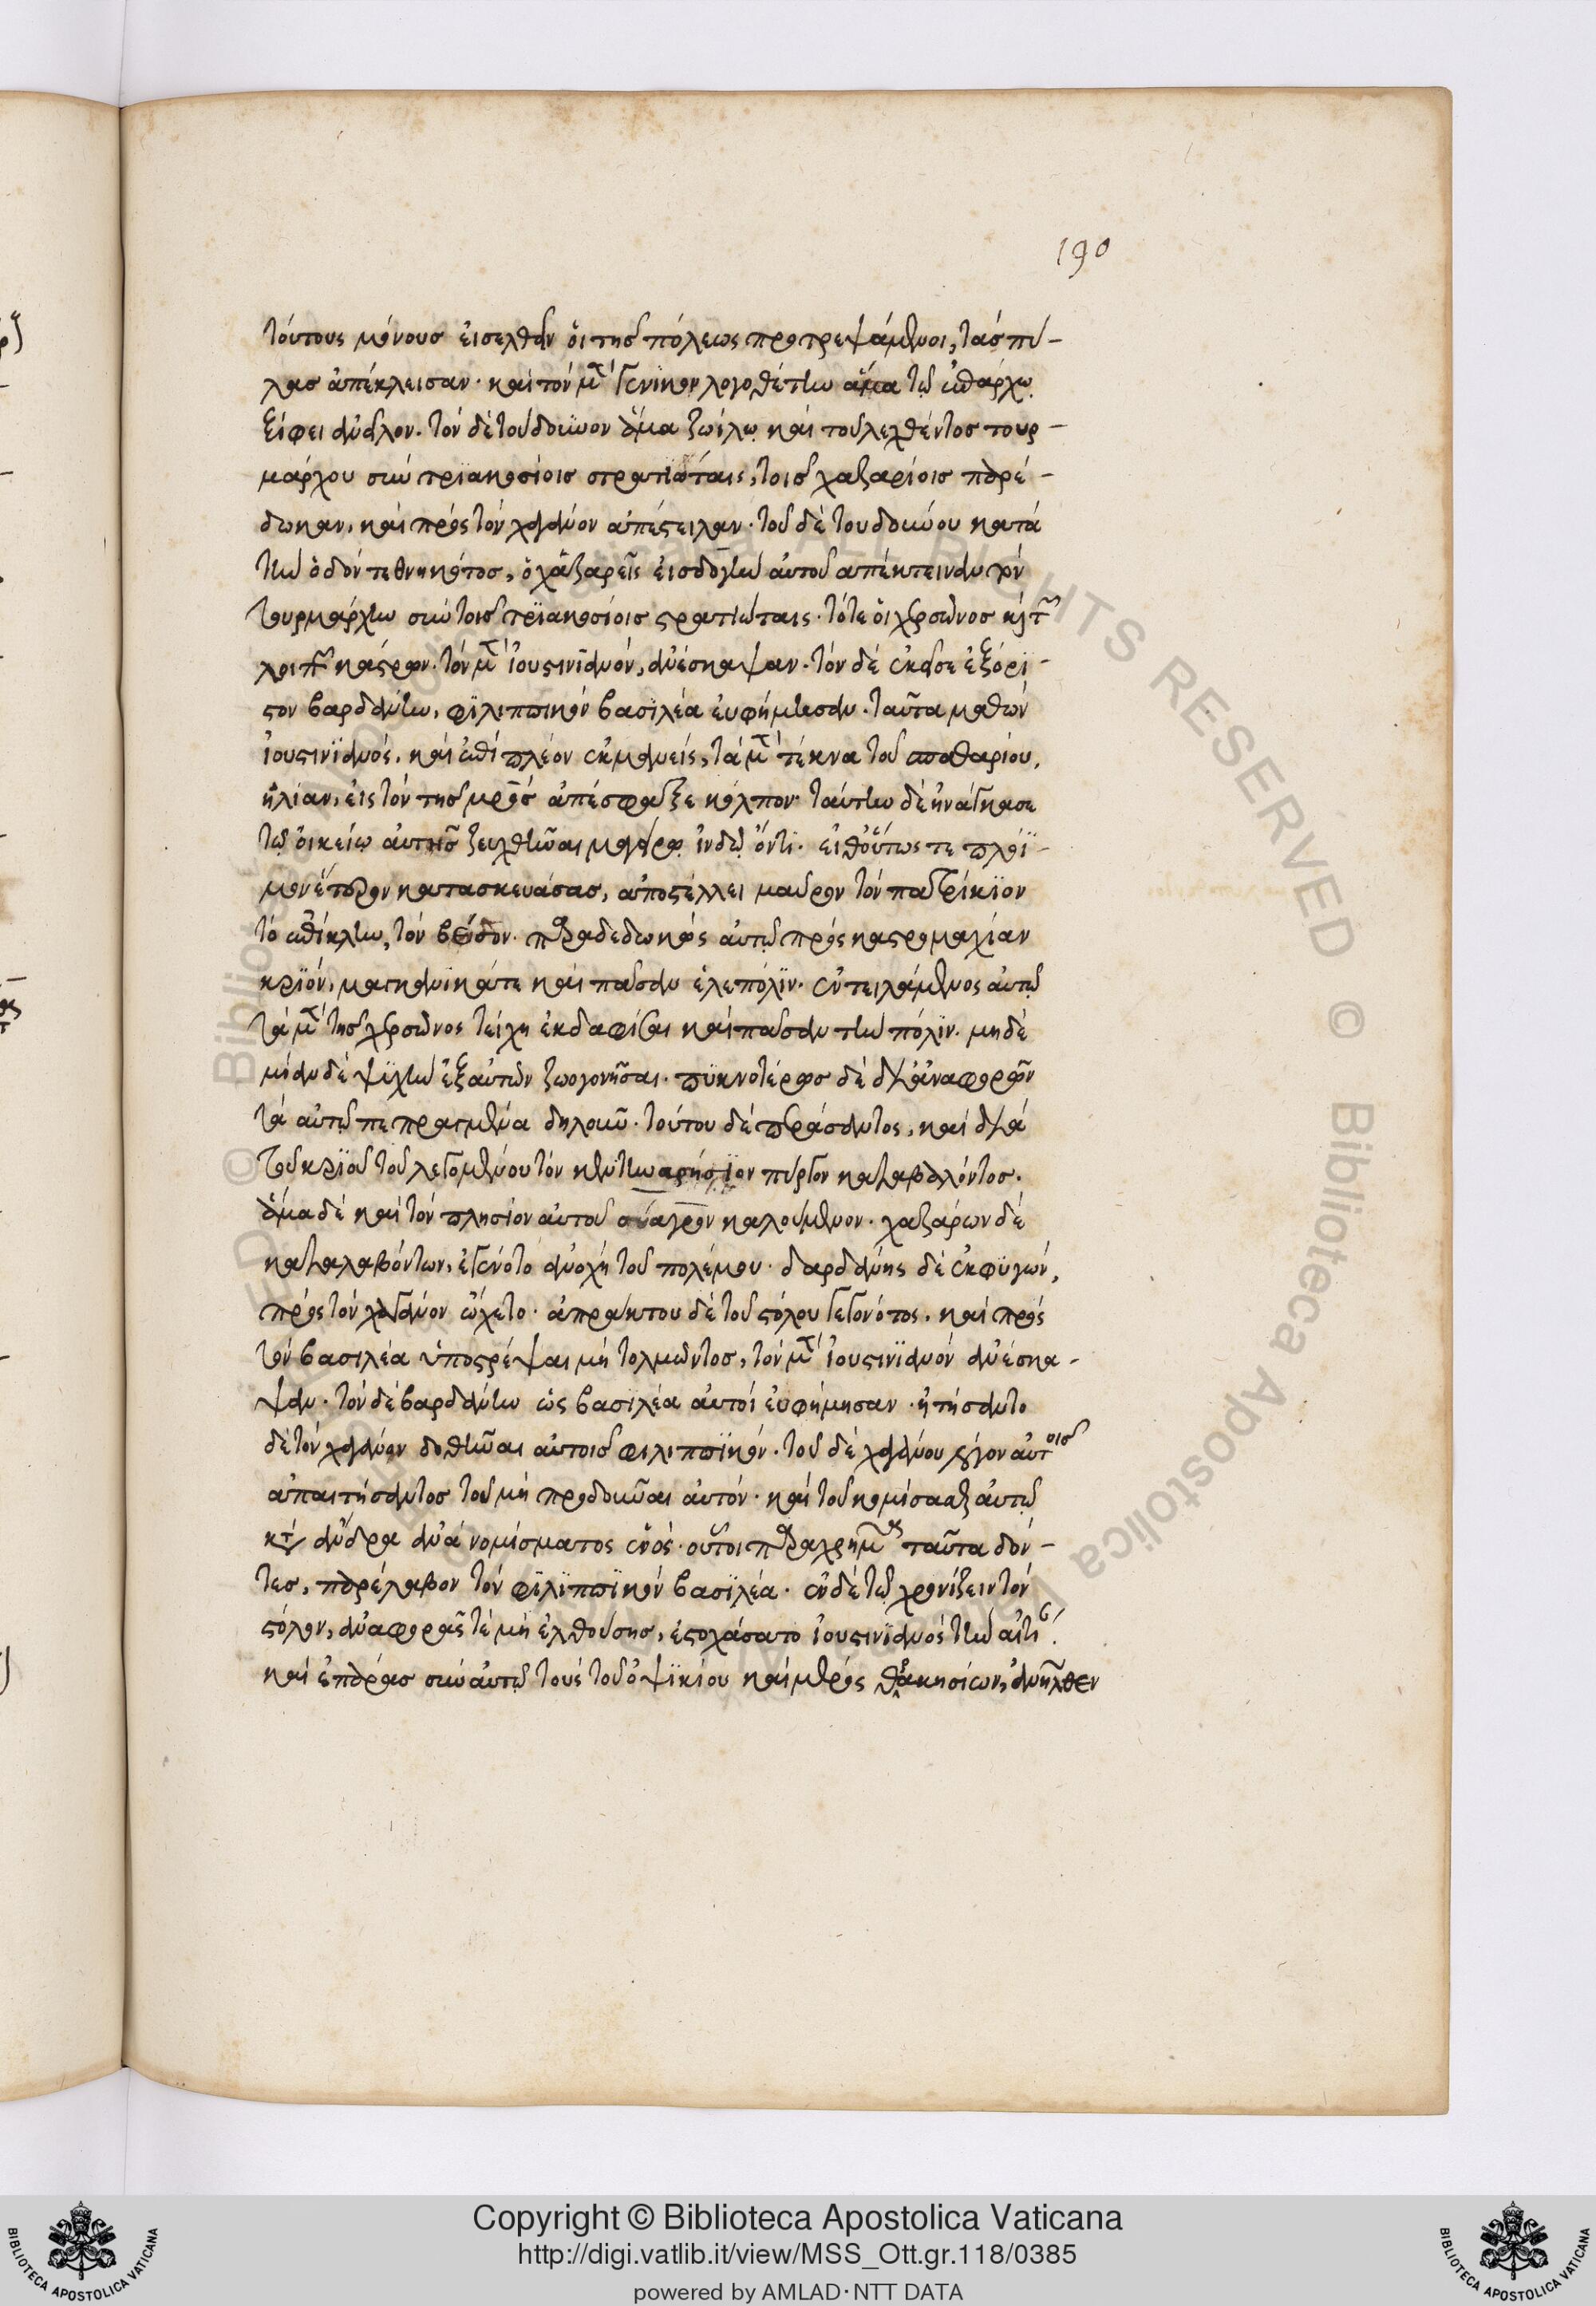 190
τούτους μόνους εἰσελθεῖν ὁι τῆς πόλεως προτρεψάμενοι, τὰς πύ-
λας ἀπέκλεισαν. καὶ τὸν μὲν γενϊκὸν λογοθέτην ἅμα τῷ ἐπάρχῳ
ξίφει ἀνεῖλον. τὸν δὲ τουδουνον ἅμα ζωίλῳ καὶ τοῦ λεχθέντος τουρ-
μάρχου σὺν τρϊακοσίοις στρατϊώταις, τοῖς χαζαρίοις παρέ-
δωκαν, καὶ πρὸς τὸν χαγάνον ἀπέστειλαν. τοῦ δὲ τουδούνου κατὰ
τὴν ὁδὸν τεθνηκότος, ὁι χάζαρεις εἰς δοχὴν αὐτοῦ ἀπέκτειναν τὸν
τουρμάρχην σὺν τοῖς τρϊακοσίοις στρατιώταις. τότε ὁι χερσῶνος καὶ τῶν
λοιπῶν κάστρων. τὸν μὲν ἰουστινϊανὸν, ἀνέσκαψαν. τὸν δὲ ἐκεῖσε ἐξόρϊ-
στον βαρδάνην, φϊλιππικὸν βασϊλέα ἐυφήμησαν. ταῦτα μαθὼν
ἰουστινϊανὸς, καὶ ἐπὶ πλέον ἐκμανεὶς, τὰ μὲν τέκνα τοῦ σπαθαρίου,
ἡλίαν, εἰς τὸν τῆς μρὸς ἀπέσφαξε κόλπον. ταύτην δὲ ἠνάγκασε
τῷ ὀικείῳ αὐτῆς ζευχθῆναι μαγείρῳ ἰνδῷ ὄντι. εἶθ' οὕτως τε πλόϊ-
μον ἕτερον κατασκευάσας, ἀποστέλλει μαῦρον τὸν πατρίκϊον
τὸ ἐπίκλην, τὸν βέσσον. παραδεδωκὼς αὐτῷ πρὸς καστρομαχίαν
κρϊὸν, μαγγανϊκά τε καὶ πᾶσαν ἑλεπόλϊν. ἐντειλάμενος αὐτῷ
τὰ μὲν τῆς χερσῶνος τείχη ἐκδαφίσαι καὶ πᾶσαν τὴν πόλϊν. μηδὲ
μίαν δὲ ψϊχὴν ἐξ αὐτῶν ζωογονῆσαι. πϋκνοτέρως δὲ δι' ἀναφορῶν
τὰ αὐτῷ πεπραγμένα δηλοῦν. τούτου δὲ περάσαντος, καὶ διὰ
τοῦ κρϊοῦ τοῦ λεγομένου τὸν κεντηναρήσϊον πύργον καταβαλόντος.
ἅμα δὲ καὶ τὸν πλησίον αὐτοῦ σύαγρον καλούμενον. χαζάρων δὲ
καταλαβόντων, ἐγένετο ἀνοχὴ τοῦ πολέμου. βαρδάνης δὲ ἐκφϋγὼν,
πρὸς τὸν χαγάνον ὤχετο. ἀπράκτου δὲ τοῦ στόλου γεγονότος, καὶ πρὸς
τὸν βασιλέα ὑποστρέψαι μὴ τολμῶντος, τὸν μὲν ἰουστινϊανὸν ἀνέσκα-
ψαν. τὸν δὲ βαρδάνην ὡς βασϊλέα αὐτοὶ ἐυφήμησαν. ᾐτήσαντο
δὲ τὸν χαγάνον δοθῆναι αὐτοῖς φιλιππϊκόν. τοῦ δὲ χαγάνου λόγον αὐτοῖς
ἀπαιτήσαντος τοῦ μὴ προδοῦναι αὐτόν. καὶ τοῦ κομίσασθαι αὐτῷ
κατ' ἄνδρα ἀνὰ νομίσματος ἑνός. οὗτοι παραχρῆμα ταῦτα δόν-
τες, παρέλαβον τὸν φϊλϊππϊκὸν βασϊλέα. ἐν δὲ τῷ χρονίζειν τὸν
στόλον, ἀναφορᾶς τὲ μὴ ἐλθούσης, ἐστοχάσατο ἰουστινϊανὸς τὴν αἰτί.
καὶ ἐπάρας σὺν αὐτῷ τοὺς τοῦ ὀψϊκίου καὶ μέρος θρακησίων, ἀνῆλθεν
Copyright © Biblioteca Apostolica Vaticana
http://digi.vatlib.it/view/MSS_Ott.gr.118/0385
powered by AMLAD·NTT DATA